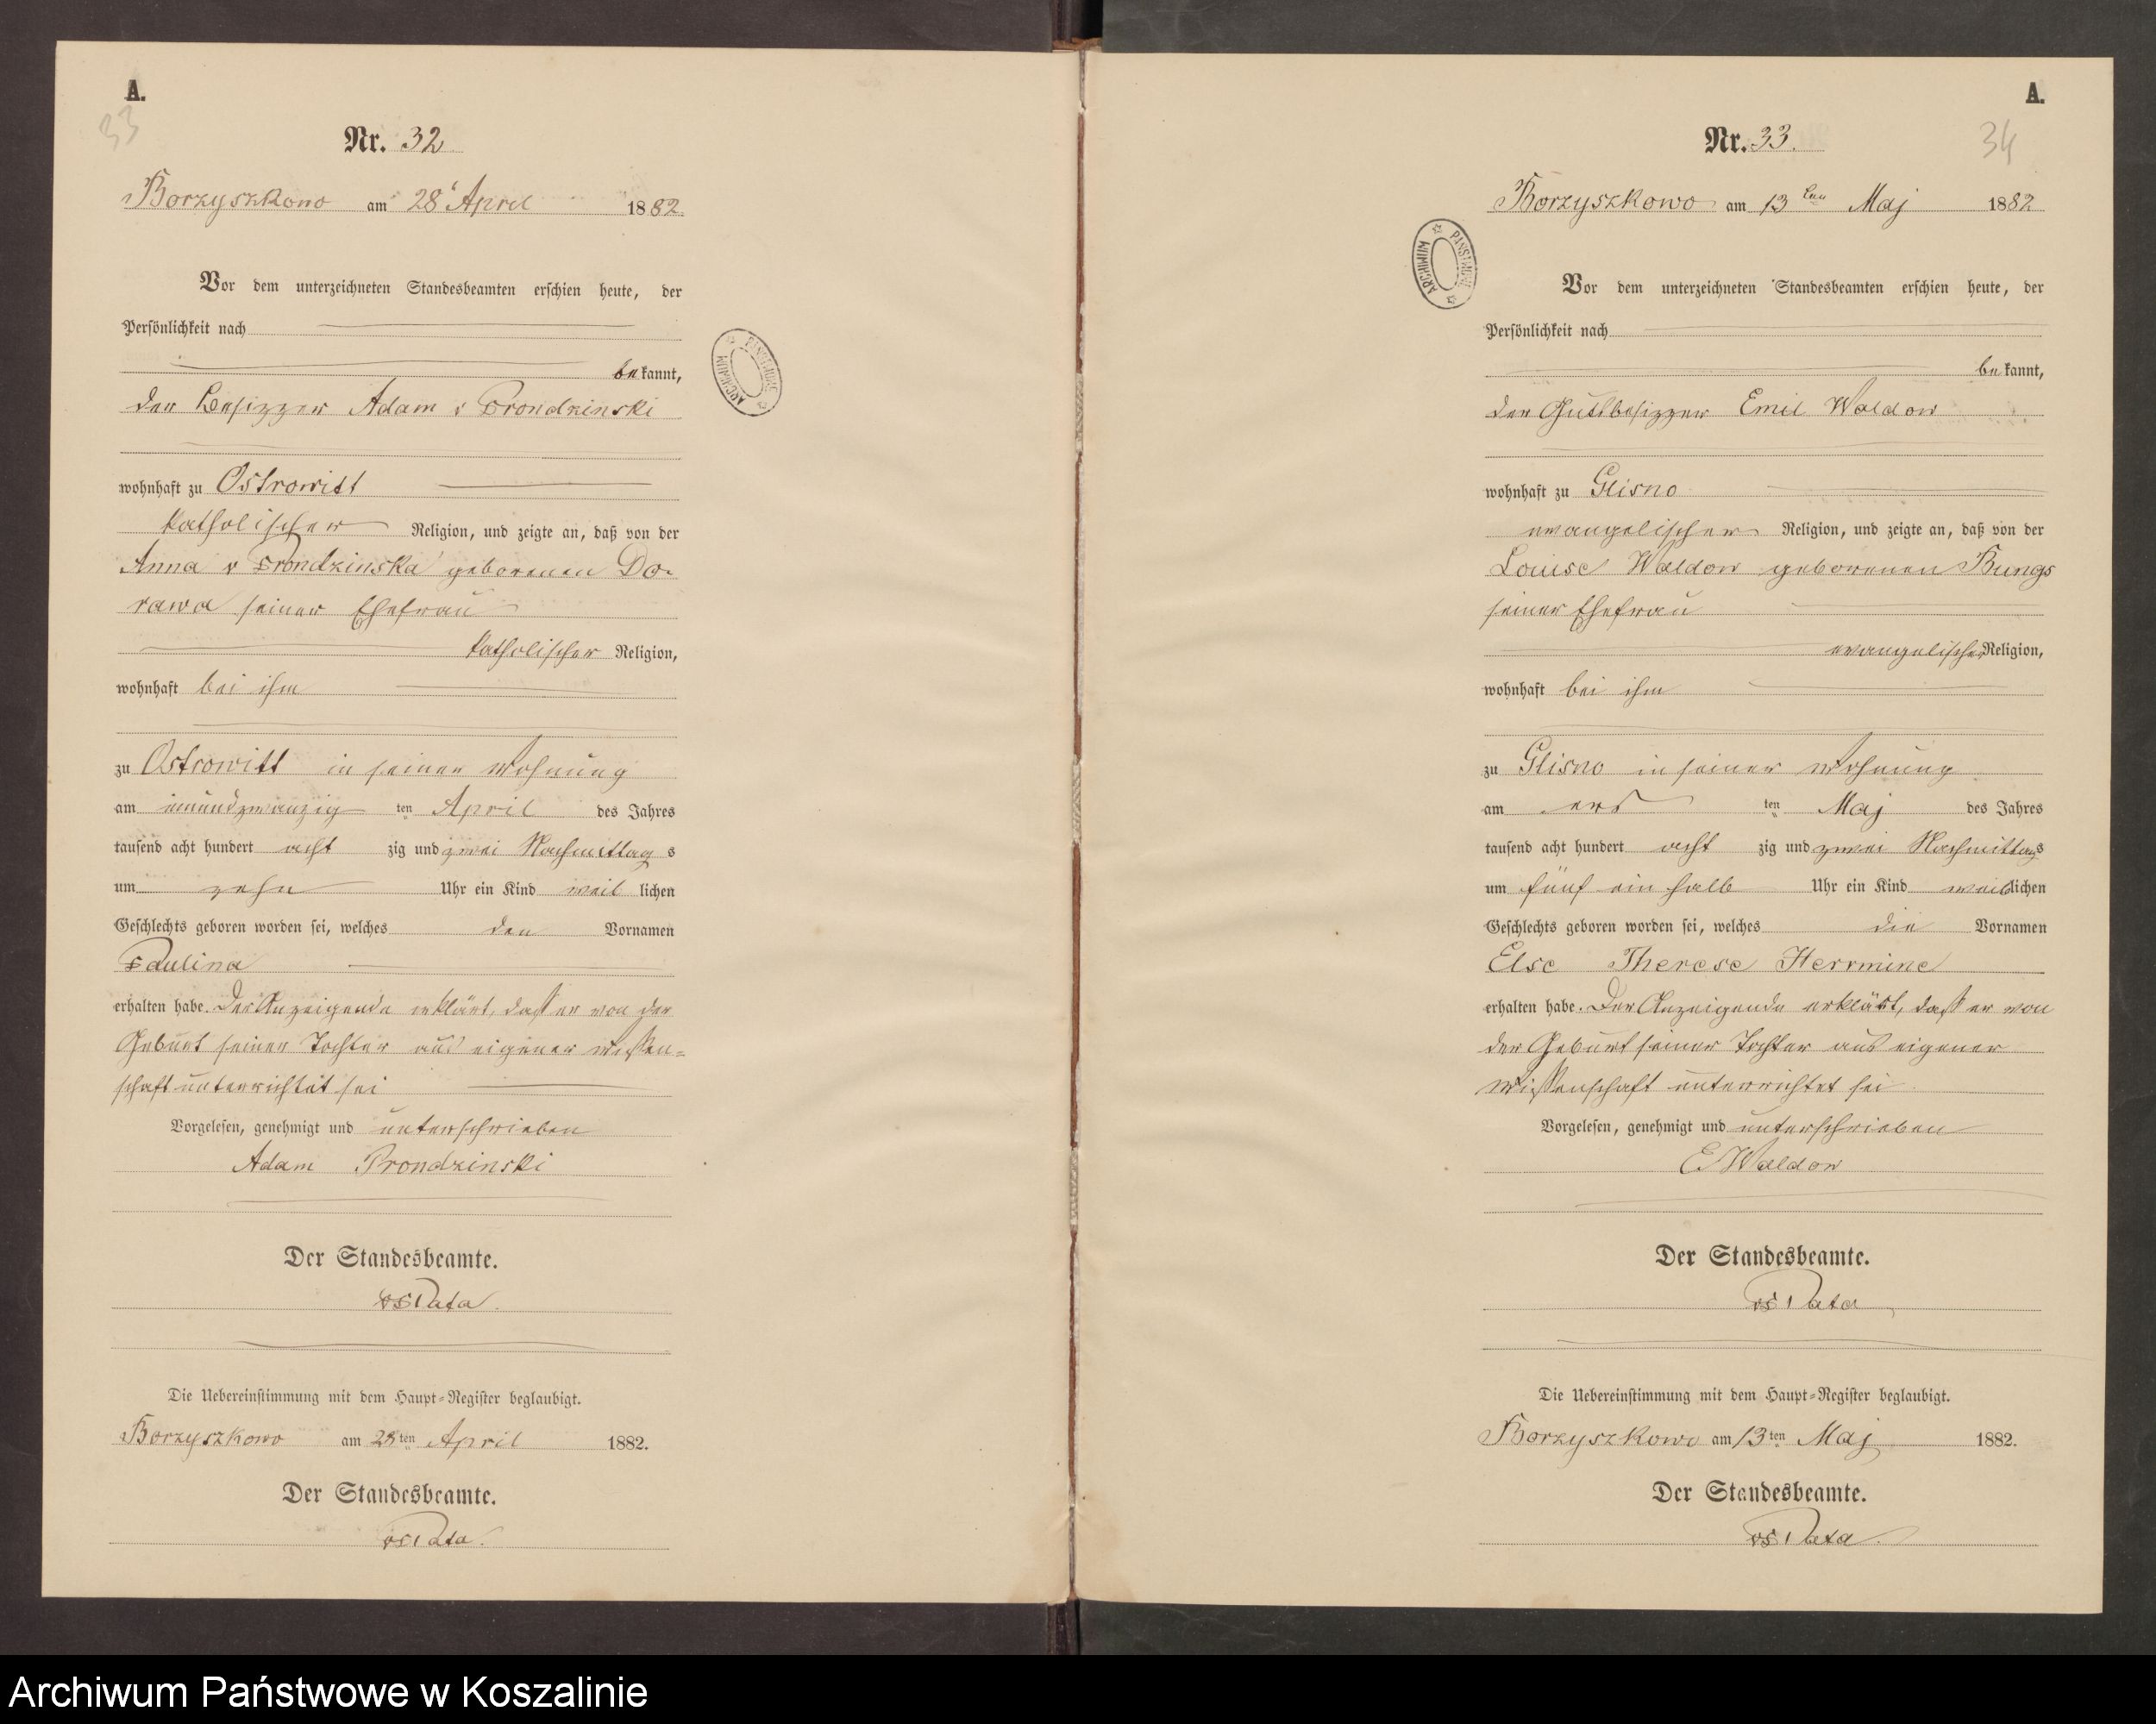 A.
33
Nr. 32
Borzyszkowo am 28 April 1882.
Vor dem unterzeichneten Standesbeamten erschien heute, der
Persönlichkeit nach
bekannt,
der Besizzer Adam v Prondzinski
wohnhaft zu Ostrowitt
katholischer Religion, und zeigte an, daß von der
Anna v Prondzinska geborenen Do-
rawa seiner Ehefrau
katholischer Religion,
wohnhaft bei ihm
zu Ostrowitt in seiner Wohnung
am einundzwanzig ten April des Jahres
tausend acht hundert acht zig und zwei Nachmittag s
um zehn Uhr ein Kind weib lichen
Geschlechts geboren worden sei, welches den Vornamen
Paulina
erhalten habe. Der Anzeigende erklärt, daß er von der
Geburt seiner Tochter aus eigener Wissen=
schaft unterrichtet sei
Vorgelesen, genehmigt und unterschrieben
Adam Prondzinski
Der Standesbeamte.
Die Uebereinstimmung mit dem Haupt=Register beglaubigt.
Borzyszkowo am 28ten April 1882.
Der Standesbeamte.
ARCHIWUM PAŃSTWOWE
A.
34
Nr. 33.
Borzyszkowo am 13 ten Maj 1882
Vor dem unterzeichneten Standesbeamten erschien heute, der
Persönlichkeit nach
bekannt,
der Gutsbesizzer Emil Waldow
wohnhaft zu Glisno
evangelischer Religion, und zeigte an, daß von der
Louise Waldow geborenen Bungs
seiner Ehefrau
evangelischer Religion,
wohnhaft bei ihm
zu Glisno in seiner Wohnung
am ers ten Maj des Jahres
tausend acht hundert acht zig und zwei Nachmittags
um fünf ein halb Uhr ein Kind weiblichen
Geschlechts geboren worden sei, welches die Vornamen
Else Therese Herrmine
erhalten habe. Der Anzeigende erklärt, daß er von
der Geburt seiner Tochter aus eigener
Wissenschaft unterrichtet sei
Vorgelesen, genehmigt und unterschrieben
E Waldow
Der Standesbeamte.
Die Uebereinstimmung mit dem Haupt=Register beglaubigt.
Borzyszkowo am 13ten Maj 1882.
Der Standesbeamte.
ARCHIWUM PAŃSTWOWE
Archiwum Państwowe w Koszalinie